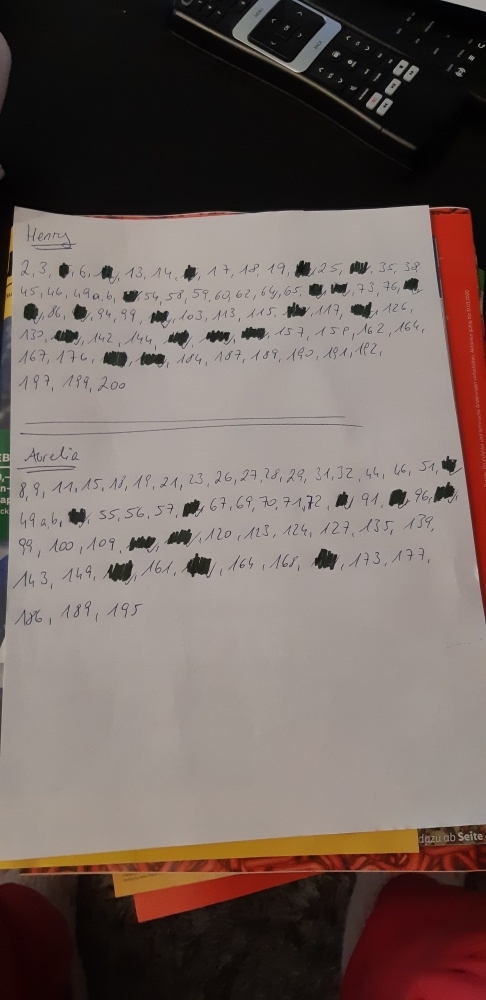 Henry
2, 3, 6, 13, 14, 17, 18, 19, 25, 35, 38
45, 46, 49a,b, 54, 58, 59, 60, 62, 64, 65, 73, 76,
86, 94, 99, 103, 113, 115, 117, 126,
130, 142, 144, 157, 158, 162, 164,
167, 176, 184, 187, 189, 190, 191, 192,
197, 199, 200
Aurelia
8, 9, 11, 15, 18, 19, 21, 23, 26, 27, 28, 29, 31, 32, 44, 46, 51,
49a,b, 55, 56, 57, 67, 69, 70, 71, 72, 91, 96,
99, 100, 109, 120, 123, 124, 127, 135, 139,
143, 149, 161, 164, 168, 173, 177,
186, 189, 195
dazu ab Seite